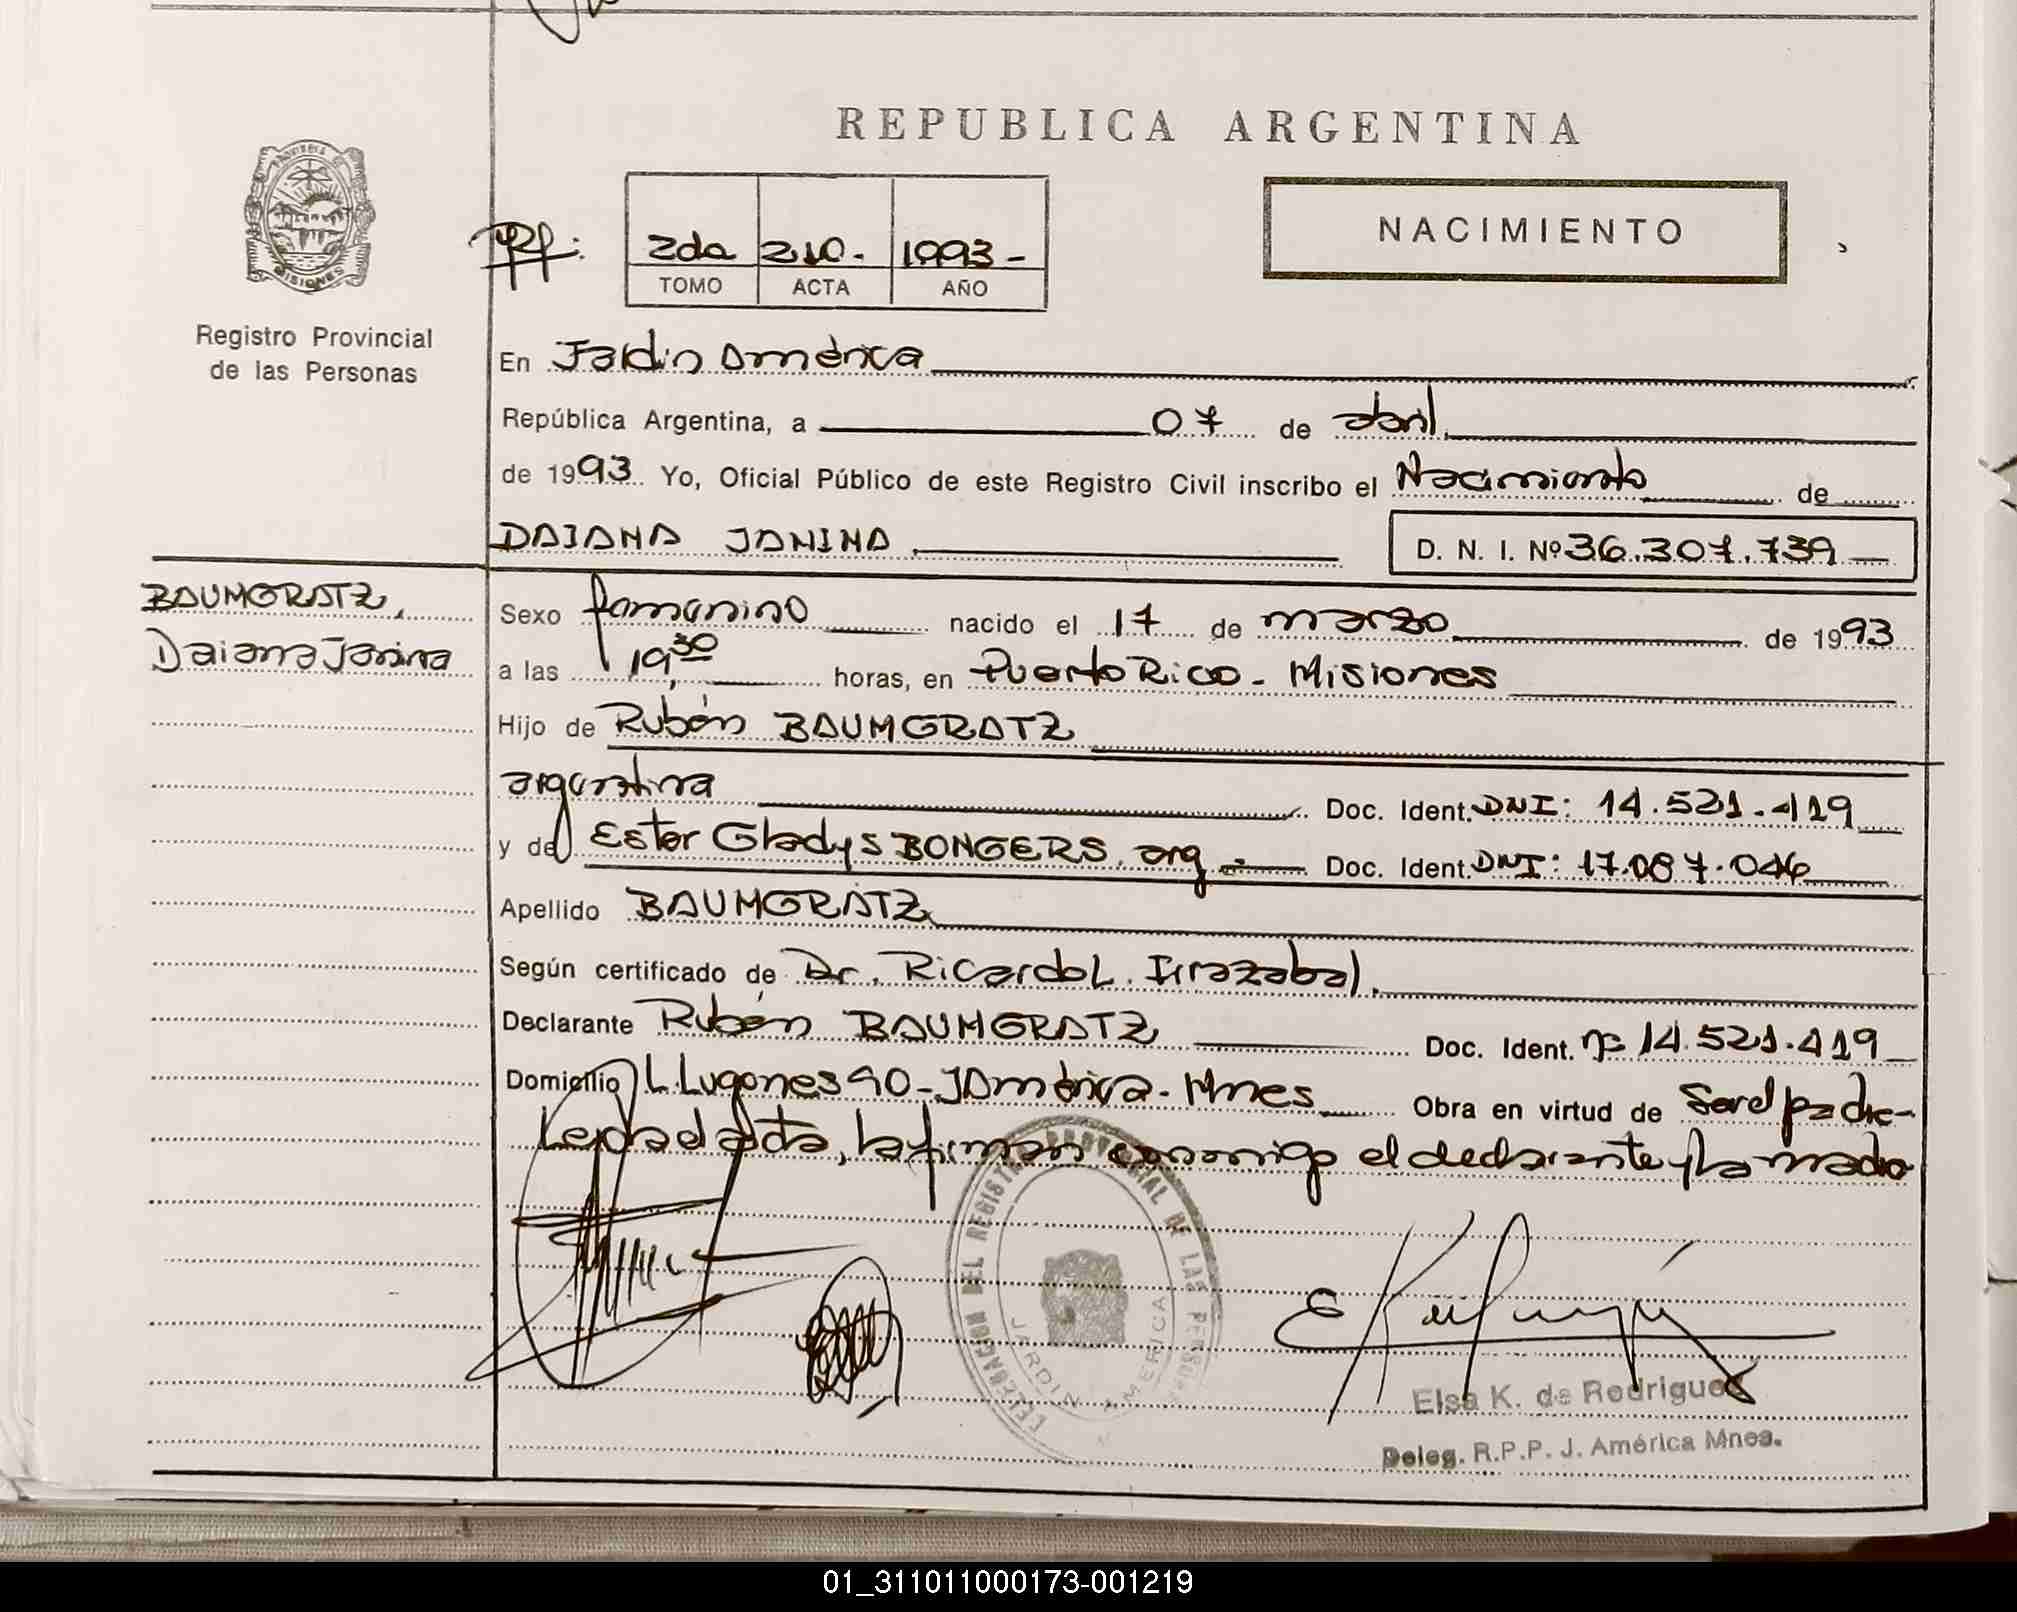 REPUBLICA ARGENTINA
PROVINCIA DE MISIONES
Registro Provincial
de las Personas
2da 210. 1993-
TOMO ACTA AÑO
NACIMIENTO
En Jardin América
República Argentina, a 07 de abril
de 1993. Yo, Oficial Público de este Registro Civil inscribo el Nacimiento de
DAIANA JANINA D. N. I. Nº 36.307.739
BAUMGRATZ,
Daiana Janina
Sexo femenino nacido el 17 de marzo de 1993
a las 19,30 horas, en Puerto Rico - Misiones
Hijo de Rubén BAUMGRATZ
argentina Doc. Ident. DNI: 14.521.419
y de Ester Gladys BONGERS, arg.- Doc. Ident. DNI: 17.087.046
Apellido BAUMGRATZ
Según certificado de Dr. Ricardo L. Irrazabal,
Declarante Rubén BAUMGRATZ Doc. Ident. nº 14.521.419
Domicilio L. Lugones 90 - J América - Mnes Obra en virtud de Ser el padre-
Leida el acta, la firman conmigo el declarante y la madre
DELEGACION DEL REGISTRO PROVINCIAL DE LAS PERSONAS
JARDIN AMERICA
Elsa K. de Rodriguez
Deleg. R.P.P. J. América Mnes.
01_311011000173-001219